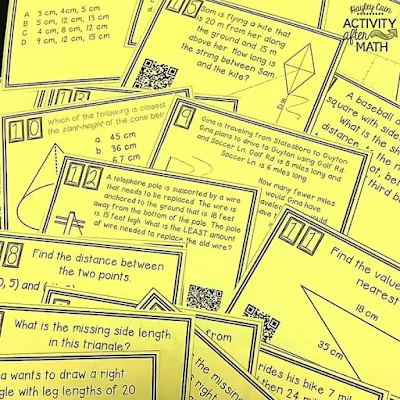 Hayley Cain
ACTIVITY
after
MATH
A 3 cm, 4cm, 5 cm
B 5 cm, 12 cm, 13 cm
C 4 cm, 8 cm, 12 cm
D 9 cm, 12 cm, 15 cm
15
Sam is flying a kite that
is 20 m from her along
the ground and 15 m
above her. How long is
the string between Sam
and the kite?
A baseball
square with side
What is the sh
distance
third b
10
Which of the following is closest
the slant-height of the cone bel
a. 45 cm
b. 36 cm
67 cm
9
Gina is traveling from Statesboro to Guyton.
Gina plans to drive to Guyton using Golf Rd.
and Soccer Ln. Golf Rd. is 8 miles long and
Soccer Ln. is 6 miles long.
How many fewer miles
would Gina have
12
A telephone pole is supported by a wire
that needs to be replaced. The wire is
anchored to the ground that is 18 feet
away from the bottom of the pole. The pole
is 15 feet high. What is the LEAST amount
of wire needed to replace the old wire?
11
Find the value
nearest
18 cm
35 cm
18
Find the distance between
the two points.
What is the missing side length
in this triangle?
from
the missing
right
rides his bike 7 mi
then 24 mi
a wants to draw a right
gle with leg lengths of 20